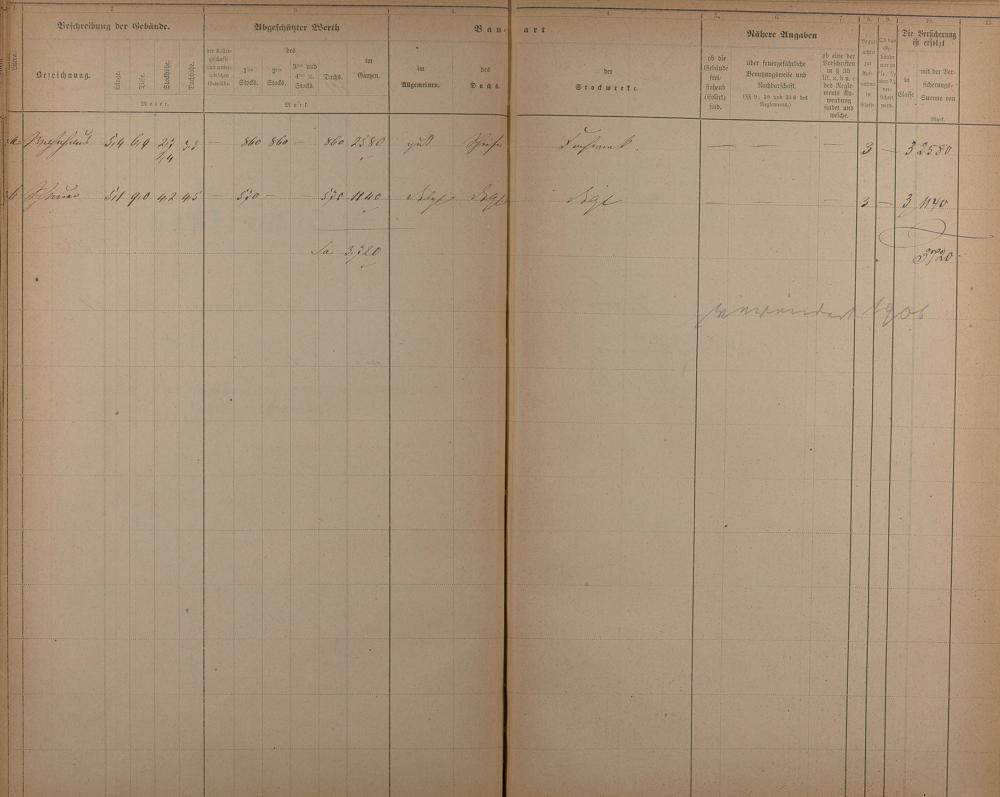 2. 3. 4. 4. 5. 6. 7. 8. 9. 10. 11.
Beschreibung der Gebäude. Abgeschätzter Werth Bau- art Nähere Angaben Die Versicherung ist erfolgt
Bezeichnung. Länge. Tiefe. Stockhöhe. Dachhöhe.
Meter.
des
1ten Stocks. 2ten Stocks. 3ten und 4ten u. Stocks. Dachs. im Ganzen.
Mark.
im Allgemeinen. des Dachs. der Stockwerke.
ob die Gebäude freistehend (isoliert) sind.
über feuergefährliche Benutzungsweise und Nachbarschaft.
(§§ 9, 10 und 33 d des Reglements.)
ob eine der Vorschriften in § 33 lit. a, b u. c des Reglements Anwendung findet und welche.
in Classe mit der Versicherungs-Summe von
Mark.
a Wohnhaus 5,4 6,9 2,7 2,4 3,3 — 860 860 — 860 2580 gut Fachwerk. — — — 3 — 3 2580
b Scheuer 5,1 9,0 4,2 4,5 — 570 — — 570 1140 — — — 3 — 3 1140
Sa. 3720
3720
verändert 1906